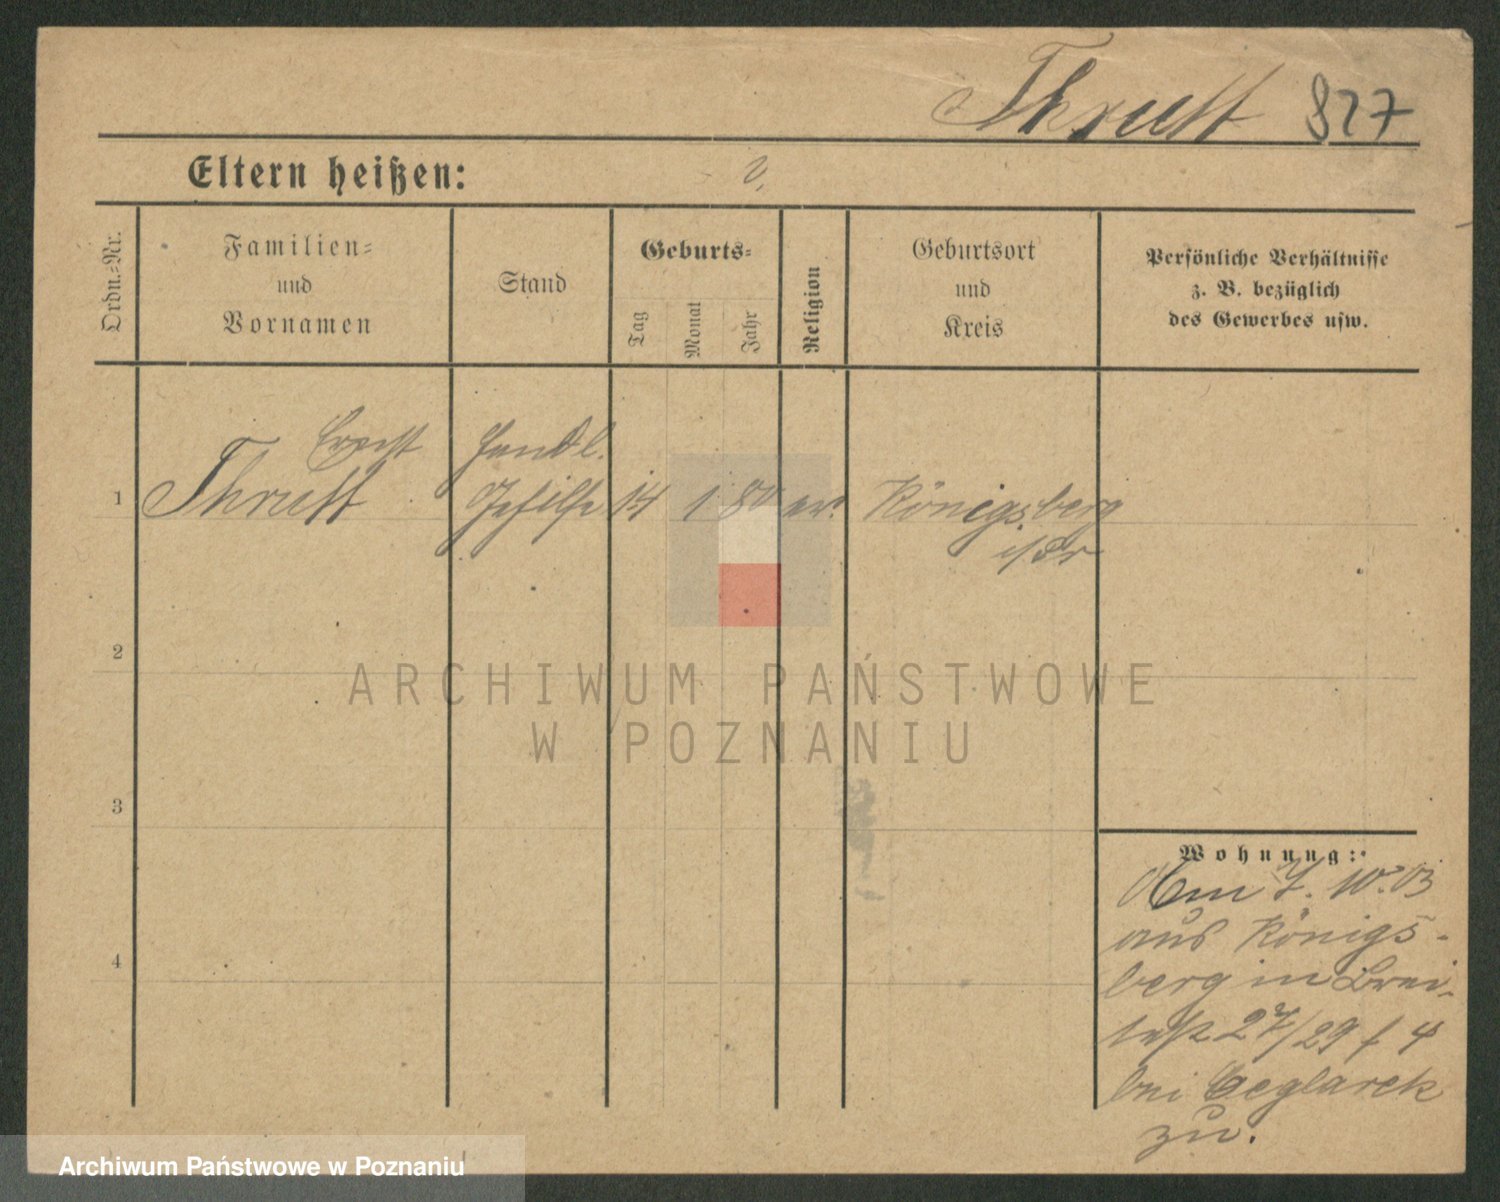 Thrutt 827
Eltern heißen: v.
Ordn.=Nr.
Familien=
und
Vornamen
Stand
Geburts=
Tag
Monat
Jahr
Religion
Geburtsort
und
Kreis
Persönliche Verhältnisse
z. B. bezüglich
des Gewerbes usw.
Ernst
Handl.
1 Thrutt Gehilfe 14 1 80 ev. Königsberg
i/Pr
2
3
4
Wohnung:
Am 7. 10. 03
aus Königs-
berg in Brei-
testr 27/29
bei Ceglarek
zu.
ARCHIWUM PAŃSTWOWE
W POZNANIU
Archiwum Państwowe w Poznaniu